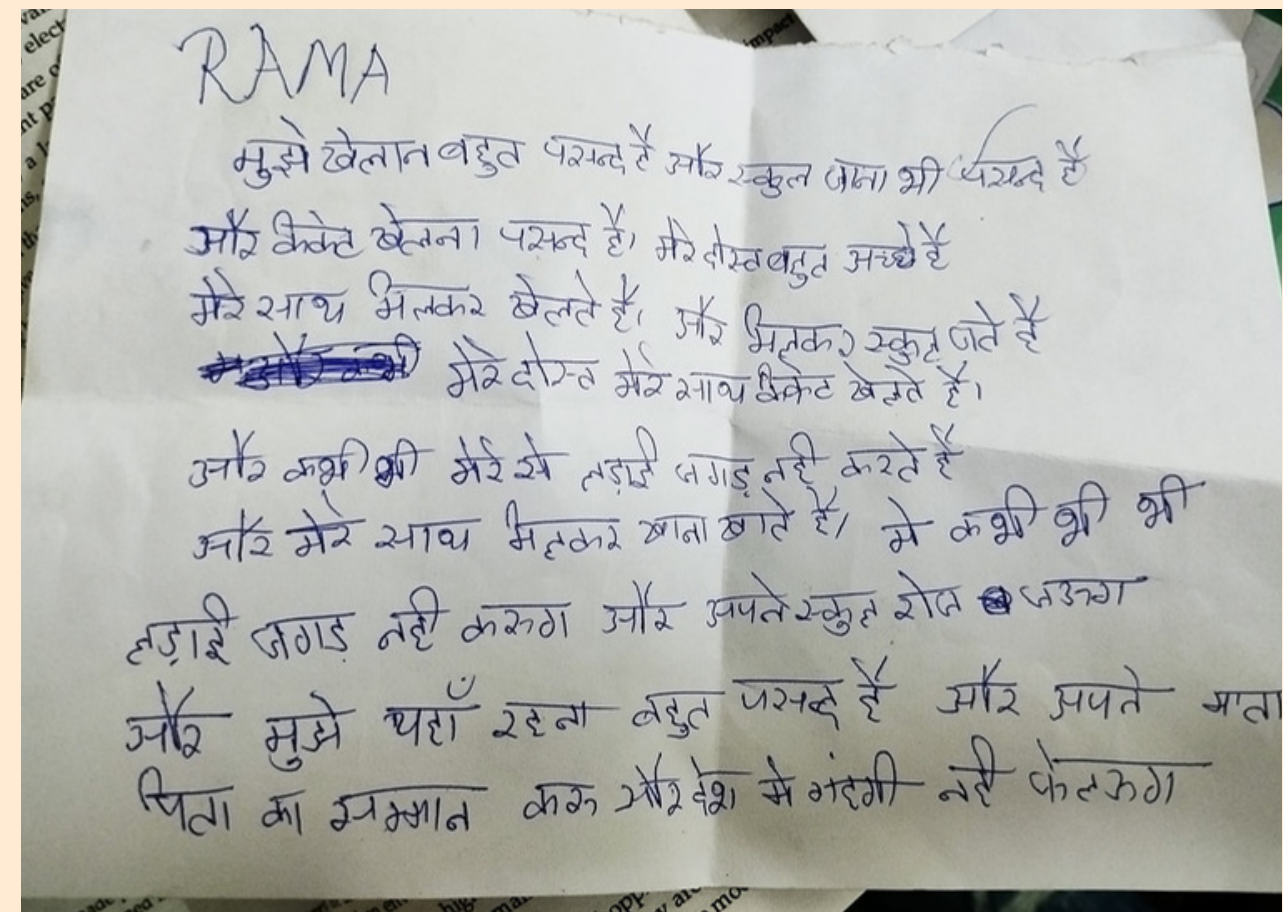 RAMA
मुझे खेलान बहुत पसन्द है और स्कुल जाना भी पसन्द है
और क्रिकेट खेलना पसन्द है। मेरे दोस्त बहुत अच्छे है
मेरे साथ मिलकर खेलते है। और मिलकर स्कुल जते है
मेरे दोस्त मेरे साथ क्रिकेट खेलते है।
और कभी भी मेरे से लड़ाई जगड़ नही करते है
और मेरे साथ मिलकर खाना खाते है। मे कभी भी भी
लड़ाई जगड नही करुग और अपने स्कुल रोज जऊग
और मुझे यहाँ रहना बहुत पसन्द है और अपने माता
पिता का सम्मान करू और देश मे गंदगी नही फेलऊग